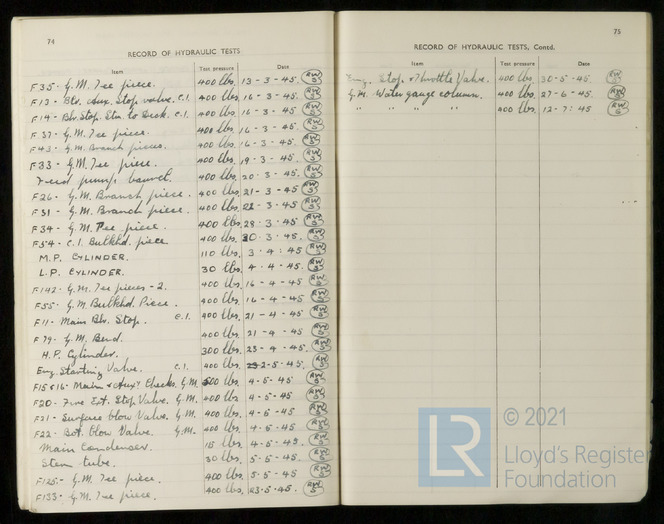 74
RECORD OF HYDRAULIC TESTS
Item Test pressure Date
F35- G.M. Tee piece. 400 lbs. 13-3-45.
F13- Blr. Aux. Stop valve. C.I. 400 lbs. 16-3-45.
F14- Blr. Stop. Stm. to Deck. C.I. 400 lbs. 16-3-45.
F37- G.M. Tee piece. 400 lbs. 16-3-45.
F43- G.M. Branch pieces. 400 lbs. 16-3-45.
F33- G.M. Tee piece. 400 lbs. 19-3-45.
Feed pump barrel. 400 lbs. 20-3-45.
F26- G.M. Branch piece. 400 lbs. 21-3-45
F31- G.M. Branch piece. 400 lbs. 22-3-45.
F34- G.M. Tee piece. 400 lbs. 28-3-45.
F54- C.I. Bulkhd. piece 400 lbs. 30-3-45.
M.P. CYLINDER. 110 lbs. 3-4-45.
L.P. CYLINDER. 30 lbs. 4-4-45.
F142- G.M. Tee pieces-2. 400 lbs. 16-4-45.
F55- G.M. Bulkhd. Piece. 400 lbs. 16-4-45.
F11- Main Blr. Stop. C.I. 400 lbs. 21-4-45.
F79- G.M. Bend. 400 lbs. 21-4-45.
H.P. Cylinder. 300 lbs. 23-4-45.
Eng. Starting Valve. C.I. 400 lbs. 2-5-45.
F15 & 16- Main & Auxy. Checks. G.M. 400 lbs. 4-5-45.
F20- Fire Ext. Stop Valve. G.M. 400 lbs. 4-5-45
F21- Surface blow Valve. G.M. 400 lbs. 4-5-45.
F22- Bot. blow Valve. G.M. 400 lbs. 4-5-45.
Main Condenser. 15 lbs. 4-5-45.
Stern tube. 30 lbs. 5-5-45.
F125- G.M. Tee piece. 400 lbs. 5-5-45.
F133- G.M. Tee piece. 400 lbs. 23-5-45.
75
RECORD OF HYDRAULIC TESTS, Contd.
Item Test pressure Date
Eng. Stop & Throttle Valve. 400 lbs. 30-5-45.
G.M. Water gauge column. 400 lbs. 27-6-45.
" " " " 400 lbs. 12-7-45
© 2021
LR
Lloyd's Register
Foundation